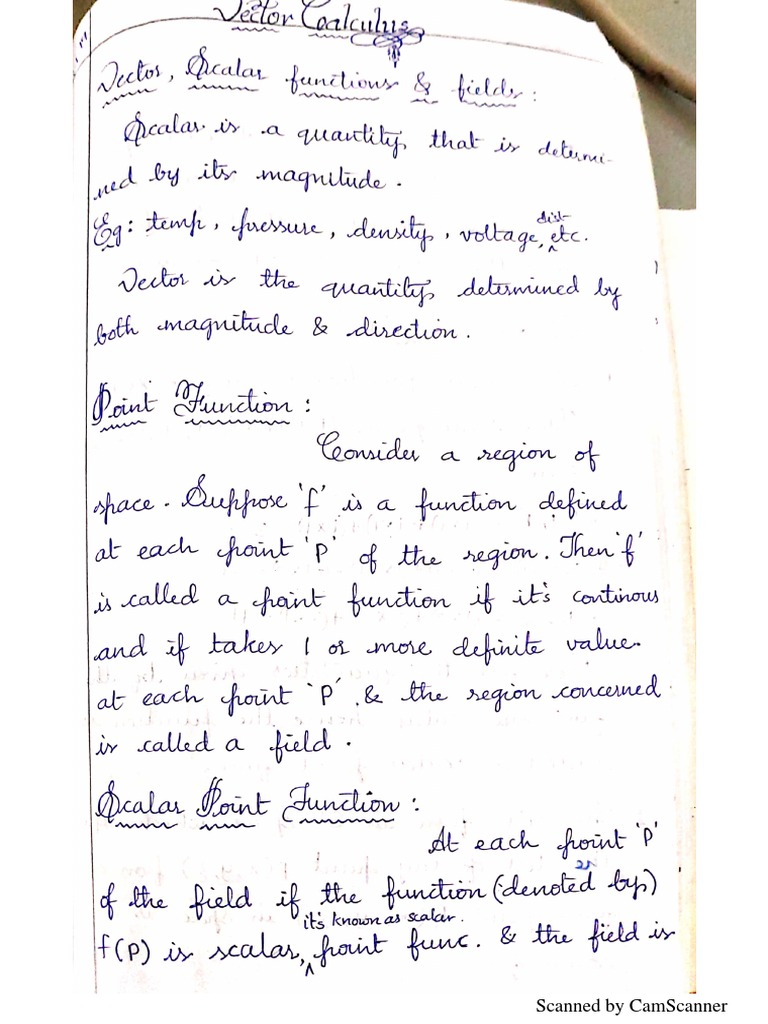 Vector Coalculus
Vector, Scalar functions & fields:
Scalar is a quantity that is determi-
ned by its magnitude.
Eg: temp, pressure, density, voltage, dist etc.
Vector is the quantity determined by
both magnitude & direction.
Point Function:
Consider a region of
space. Suppose 'f' is a function defined
at each point 'P' of the region. Then 'f'
is called a point function if it's continous
and if takes 1 or more definite value.
at each point 'P'. & the region concerned
is called a field.
Scalar Point Function:
At each point 'P'
of the field if the function (denoted by)
it's known as scalar.
f(P) is scalar, point func. & the field is
Scanned by CamScanner